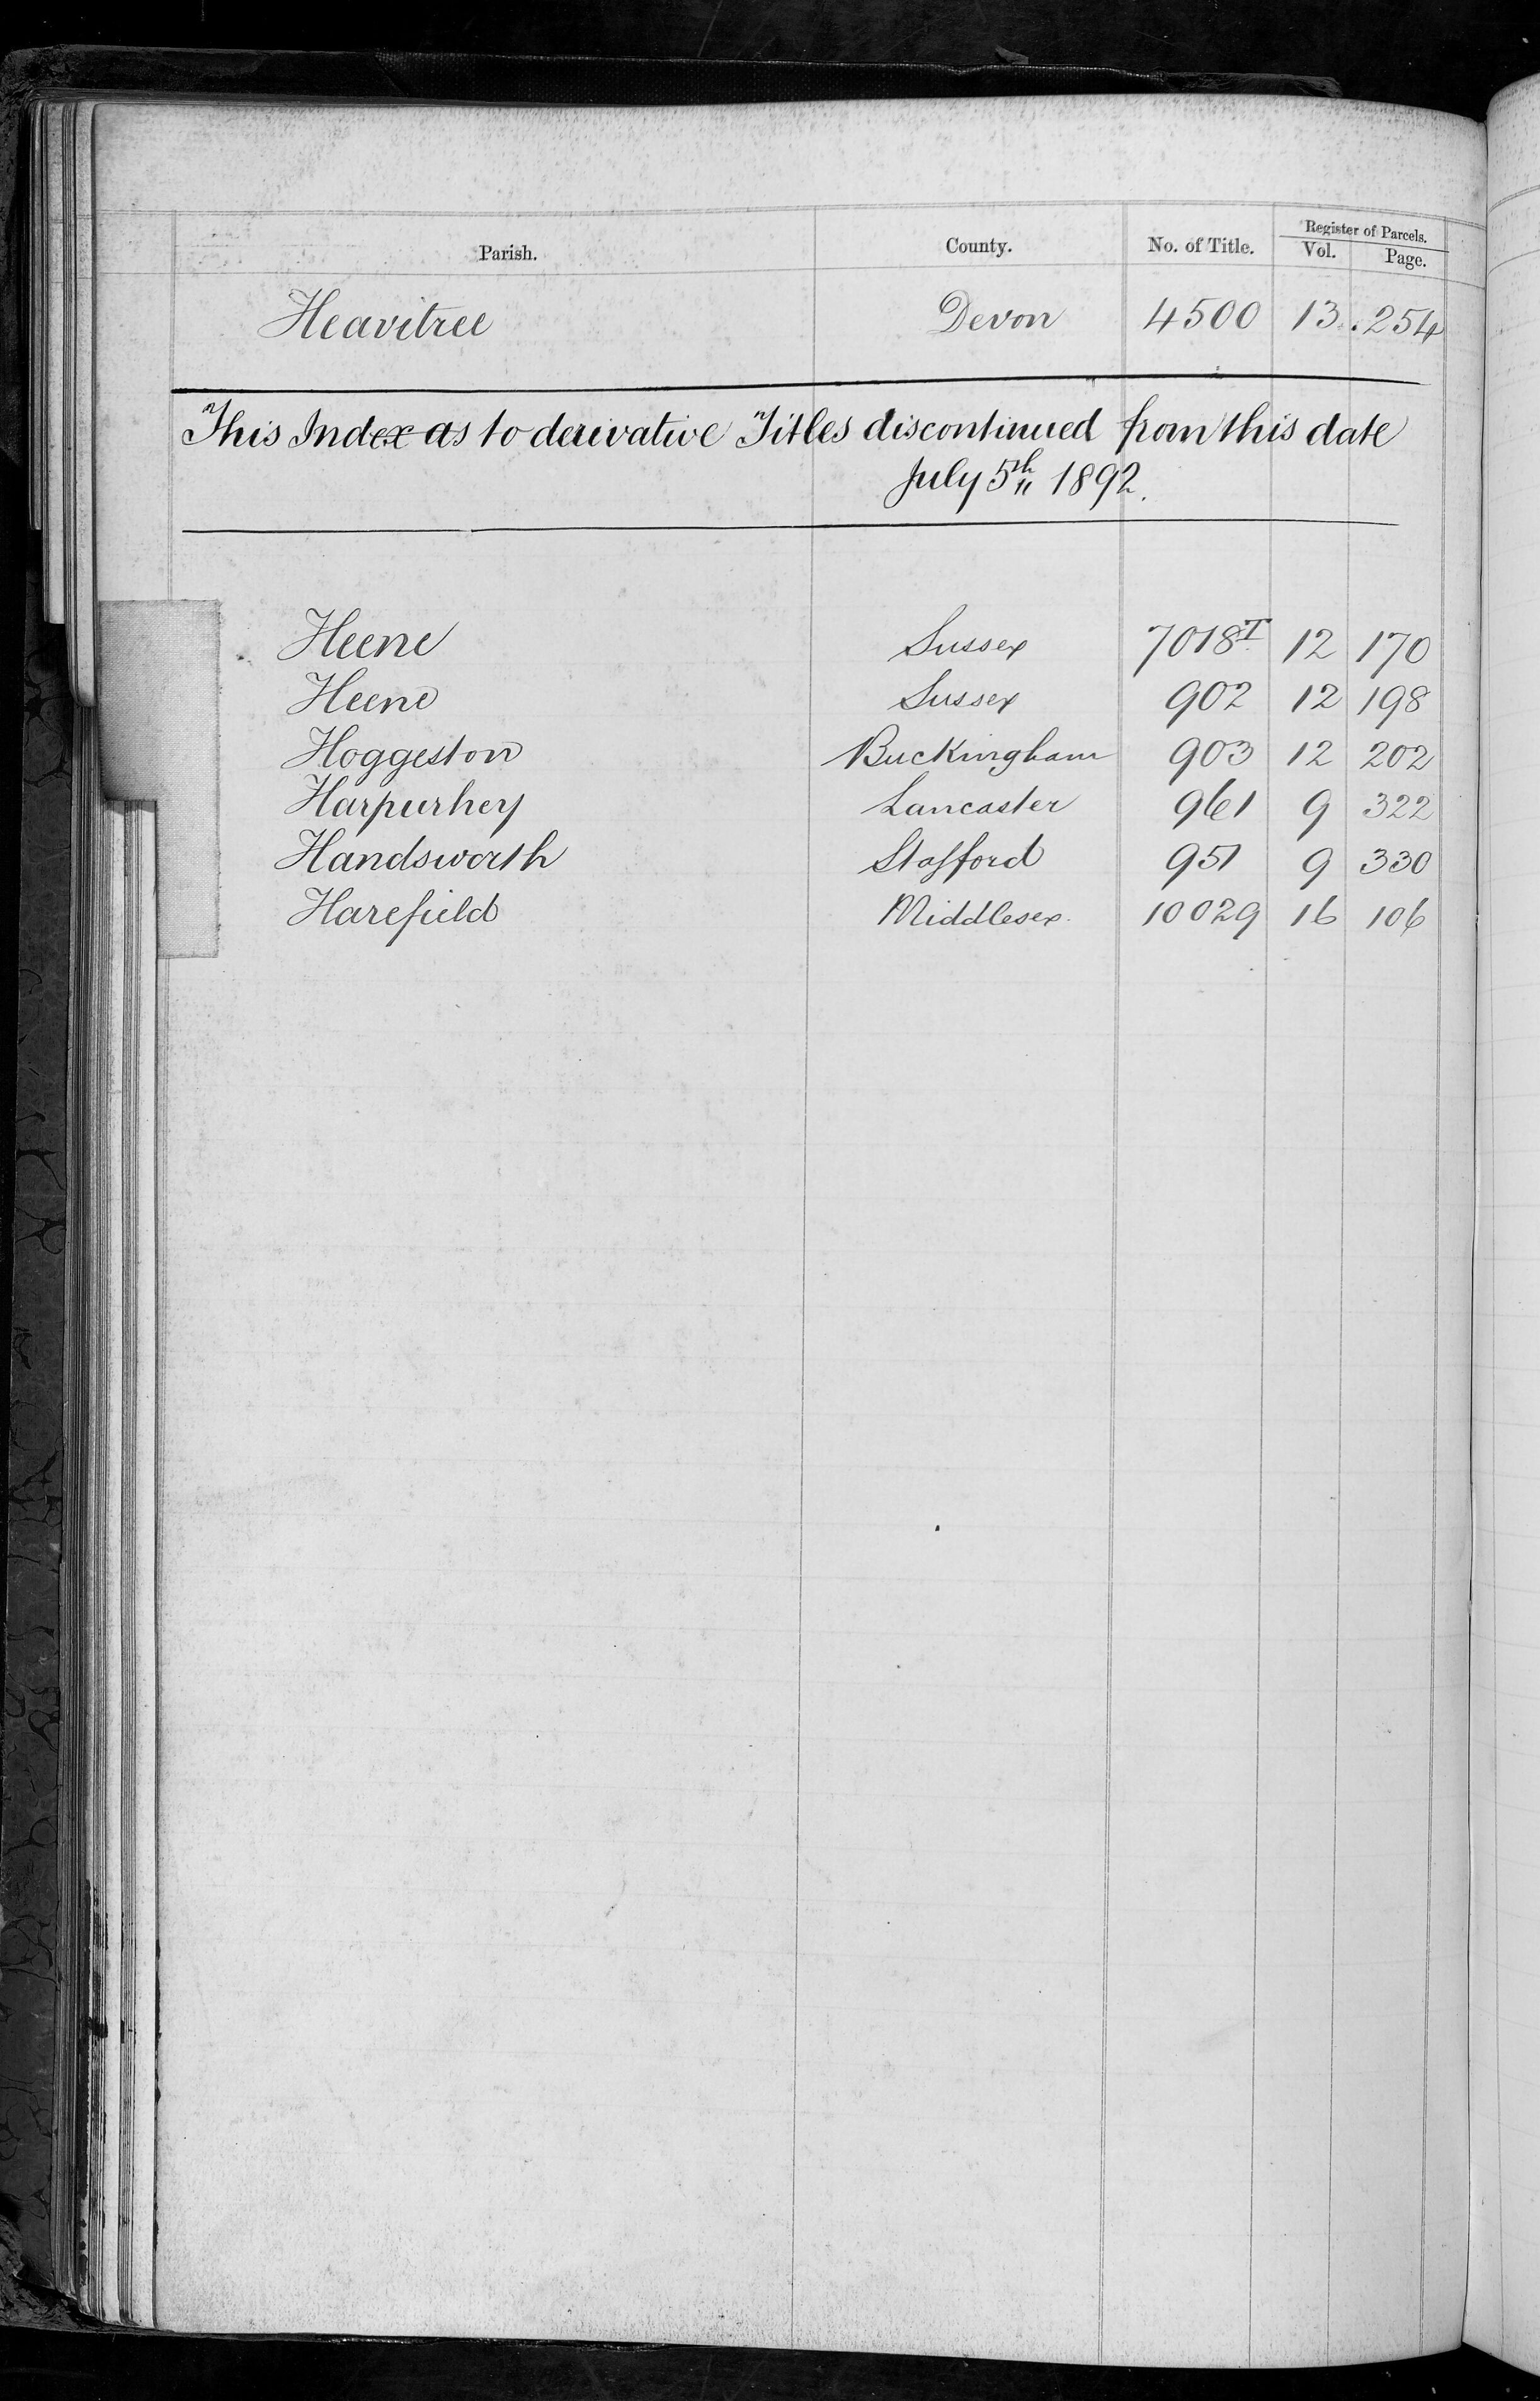 Parish. County. No. of Title. Register of Parcels. Vol. Page.
Heavitree Devon 4500 13 . 254
This Index as to derivative Titles discontinued from this date
July 5th 1892.
Heene Sussex 7018T 12 170
Heene Sussex 902 12 198
Hoggeston Buckingham 903 12 202
Harpurhey Lancaster 961 9 322
Handsworth Stafford 951 9 330
Harefield Middlesex 10029 16 106